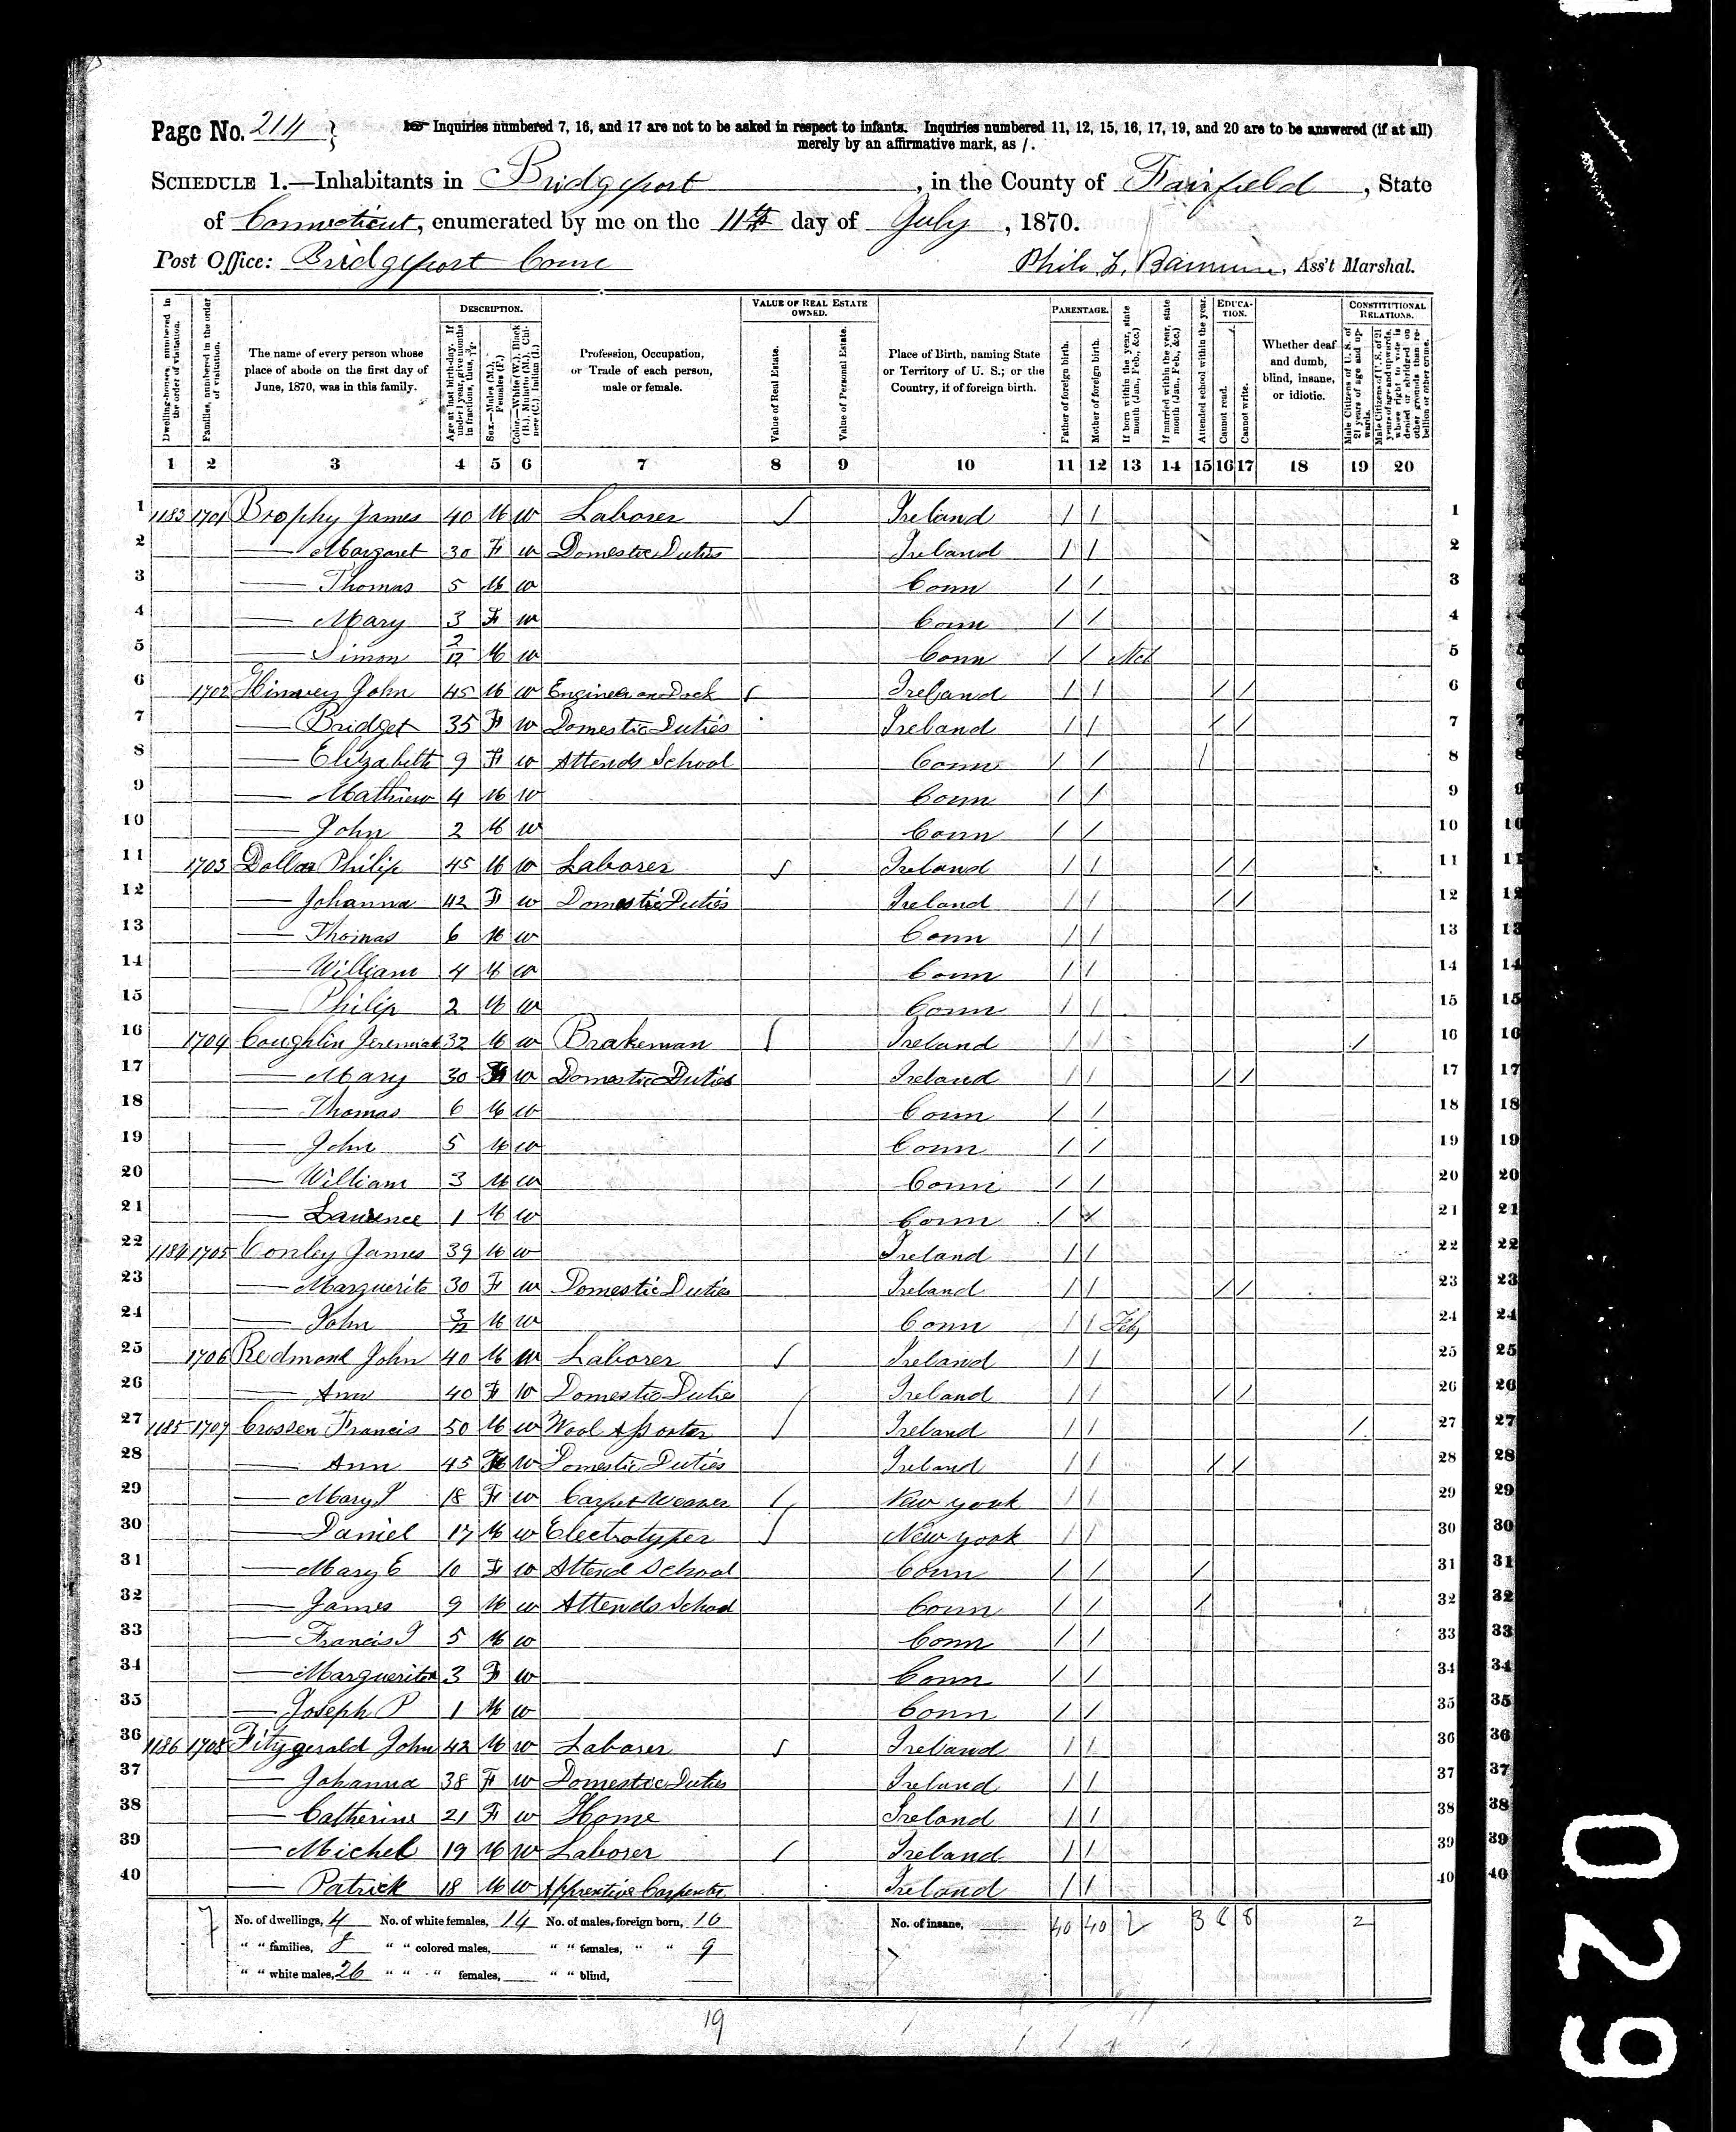 Page No. 214
Inquiries numbered 7, 16, and 17 are not to be asked in respect to infants. Inquiries numbered 11, 12, 15, 16, 17, 19, and 20 are to be answered (if at all)
merely by an affirmative mark, as /.
SCHEDULE 1.—Inhabitants in Bridgeport, in the County of Fairfield, State
of Connecticut, enumerated by me on the 11th day of July, 1870.
Post Office: Bridgeport Conn
Ass't Marshal.
Dwelling-houses, numbered in the order of visitation.
Families, numbered in the order of visitation.
The name of every person whose place of abode on the first day of June, 1870, was in this family.
DESCRIPTION.
Age at last birth-day. If under 1 year, give months in fractions, thus, 3/12
Sex.—Males (M.), Females (F.)
Color.—White (W.), Black (B.), Mulatto (M.), Chinese (C.), Indian (I.)
Profession, Occupation, or Trade of each person, male or female.
VALUE OF REAL ESTATE OWNED.
Value of Real Estate.
Value of Personal Estate.
Place of Birth, naming State or Territory of U. S.; or the Country, if of foreign birth.
PARENTAGE.
Father of foreign birth.
Mother of foreign birth.
If born within the year, state month (Jan., Feb., &c.)
If married within the year, state month (Jan., Feb., &c.)
Attended school within the year.
EDUCATION.
Cannot read.
Cannot write.
Whether deaf and dumb, blind, insane, or idiotic.
CONSTITUTIONAL RELATIONS.
Male Citizens of U. S. of 21 years of age and upwards.
Male Citizens of U. S. of 21 years of age and upwards, whose right to vote is denied or abridged on other grounds than rebellion or other crime.
1 2 3 4 5 6 7 8 9 10 11 12 13 14 15 16 17 18 19 20
1 1183 1701 Brophy James 40 M W Laborer Ireland / / 1
2 — Margaret 30 F W Domestic Duties Ireland / / 2
3 — Thomas 5 M W Conn / / 3
4 — Mary 3 F W Conn / / 4
5 — Simon 2/12 M W Conn / / Mch 5
6 1702 John 45 M W Engineer on Dock Ireland / / / / 6
7 — Bridget 35 F W Domestic Duties Ireland / / / / 7
8 — Elizabeth 9 F W Attends School Conn / / / 8
9 — Mathew 4 M W Conn / / 9
10 — John 2 M W Conn / / 10
11 1703 Philip 45 M W Laborer Ireland / / / / 11
12 — Johanna 42 F W Domestic Duties Ireland / / / / 12
13 — Thomas 6 M W Conn / / 13
14 — William 4 M W Conn / / 14
15 — Philip 2 M W Conn / / 15
16 1704 Coughlin Jeremiah 32 M W Brakeman Ireland / / / 16
17 — Mary 30 F W Domestic Duties Ireland / / / / 17
18 — Thomas 6 M W Conn / / 18
19 — John 5 M W Conn / / 19
20 — William 3 M W Conn / / 20
21 — Laurence 1 M W Conn / / 21
22 1184 1705 Conley James 39 M W Ireland / / 22
23 — Marguerite 30 F W Domestic Duties Ireland / / / / 23
24 — John 3/12 M W Conn / / Feb 24
25 1706 Redmond John 40 M W Laborer Ireland / / 25
26 — Ann 40 F W Domestic Dutie Ireland / / / / 26
27 1185 1707 Crossen Francis 50 M W Wool Ireland / / / 27
28 — Ann 45 F W Domestic Duties Ireland / / / / 28
29 — Mary J 18 F W Carpet Weaver New York / / 29
30 — Daniel 17 M W Electrotyper New York / / 30
31 — Mary E 10 F W Attend School Conn / / / 31
32 — James 9 M W Attends School Conn / / / 32
33 — Francis J 5 M W Conn / / 33
34 — Marguerite 3 F W Conn / / 34
35 — Joseph P 1 M W Conn / / 35
36 1186 1708 Fitzgerald John 42 M W Laborer Ireland / / 36
37 — Johanna 38 F W Domestic Duties Ireland / / 37
38 — Catherine 21 F W Home Ireland / / 38
39 — Michel 19 M W Laborer Ireland / / 39
40 — Patrick 18 M W Apprentice Carpenter Ireland / / 40
No. of dwellings, 4 No. of white females, 14 No. of males, foreign born, 10 No. of insane, 40 40 2 3 8 8 2
" " families, 8 " " colored males, " " females, " " 9
" " white males, 26 " " " females, " " blind,
19
029